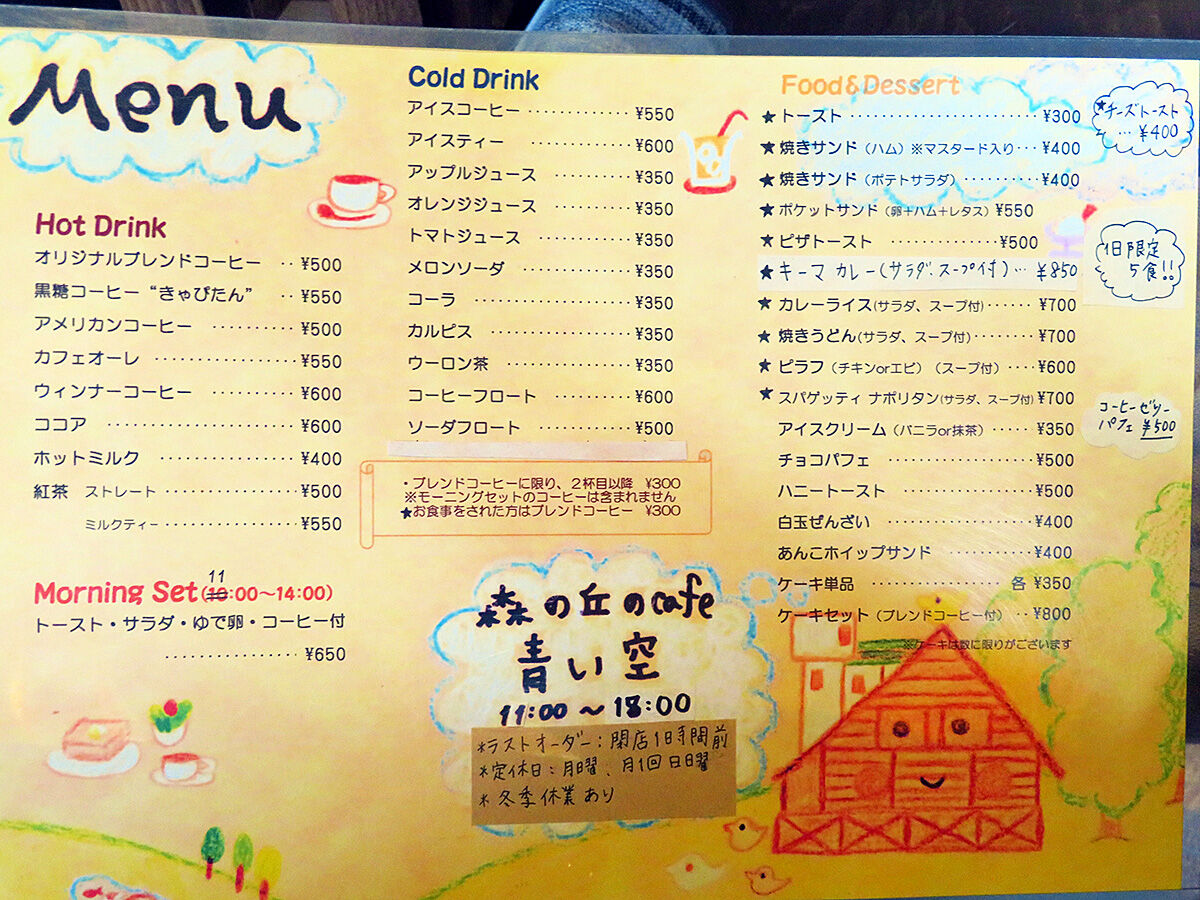 Menu
Hot Drink
オリジナルブレンドコーヒー ‥ ¥500
黒糖コーヒー“きゃぴたん” ‥ ¥550
アメリカンコーヒー ‥‥‥‥‥ ¥500
カフェオーレ ‥‥‥‥‥‥‥‥ ¥550
ウィンナーコーヒー ‥‥‥‥‥ ¥600
ココア ‥‥‥‥‥‥‥‥‥‥‥ ¥600
ホットミルク ‥‥‥‥‥‥‥‥ ¥400
紅茶 ストレート ‥‥‥‥‥‥‥ ¥500
ミルクティー ‥‥‥‥‥‥‥ ¥550
11
Morning Set(10:00～14:00)
トースト・サラダ・ゆで卵・コーヒー付
‥‥‥‥‥‥‥ ¥650
Cold Drink
アイスコーヒー ‥‥‥‥‥‥ ¥550
アイスティー ‥‥‥‥‥‥ ¥600
アップルジュース ‥‥‥‥‥ ¥350
オレンジジュース ‥‥‥‥‥ ¥350
トマトジュース ‥‥‥‥‥ ¥350
メロンソーダ ‥‥‥‥‥‥‥ ¥350
コーラ ‥‥‥‥‥‥‥‥‥ ¥350
カルピス ‥‥‥‥‥‥‥‥ ¥350
ウーロン茶 ‥‥‥‥‥‥‥‥ ¥350
コーヒーフロート ‥‥‥‥‥ ¥600
ソーダフロート ‥‥‥‥‥‥ ¥500
・ブレンドコーヒーに限り、2杯目以降 ¥300
※モーニングセットのコーヒーは含まれません
★お食事をされた方はブレンドコーヒー ¥300
森の丘のcafe
青い空
11:00 ～ 18:00
*ラストオーダー：閉店1時間前
*定休日：月曜、月1回日曜
*冬季休業あり
Food&Dessert
★トースト ‥‥‥‥‥‥‥‥‥‥ ¥300
★焼きサンド（ハム）※マスタード入り‥‥ ¥400
★焼きサンド（ポテトサラダ）‥‥‥‥‥ ¥400
★ポケットサンド（卵＋ハム＋レタス）¥550
★ピザトースト ‥‥‥‥‥‥ ¥500
★キーマ カレー(サラダ、スープ付)… ¥850
★カレーライス(サラダ、スープ付)‥‥‥ ¥700
★焼きうどん(サラダ、スープ付)‥‥‥‥ ¥700
★ピラフ（チキンorエビ）（スープ付）‥‥ ¥600
★スパゲッティ ナポリタン(サラダ、スープ付) ¥700
アイスクリーム（バニラor抹茶）‥‥‥ ¥350
チョコパフェ ‥‥‥‥‥‥‥‥‥ ¥500
ハニートースト ‥‥‥‥‥‥‥‥ ¥500
白玉ぜんざい ‥‥‥‥‥‥‥‥‥ ¥400
あんこホイップサンド ‥‥‥‥‥ ¥400
ケーキ単品 ‥‥‥‥‥‥‥‥ 各 ¥350
ケーキセット（ブレンドコーヒー付）‥ ¥800
※ケーキは数に限りがございます
★チーズトースト
… ¥400
1日限定
5食!!
コーヒーゼリー
パフェ ¥500